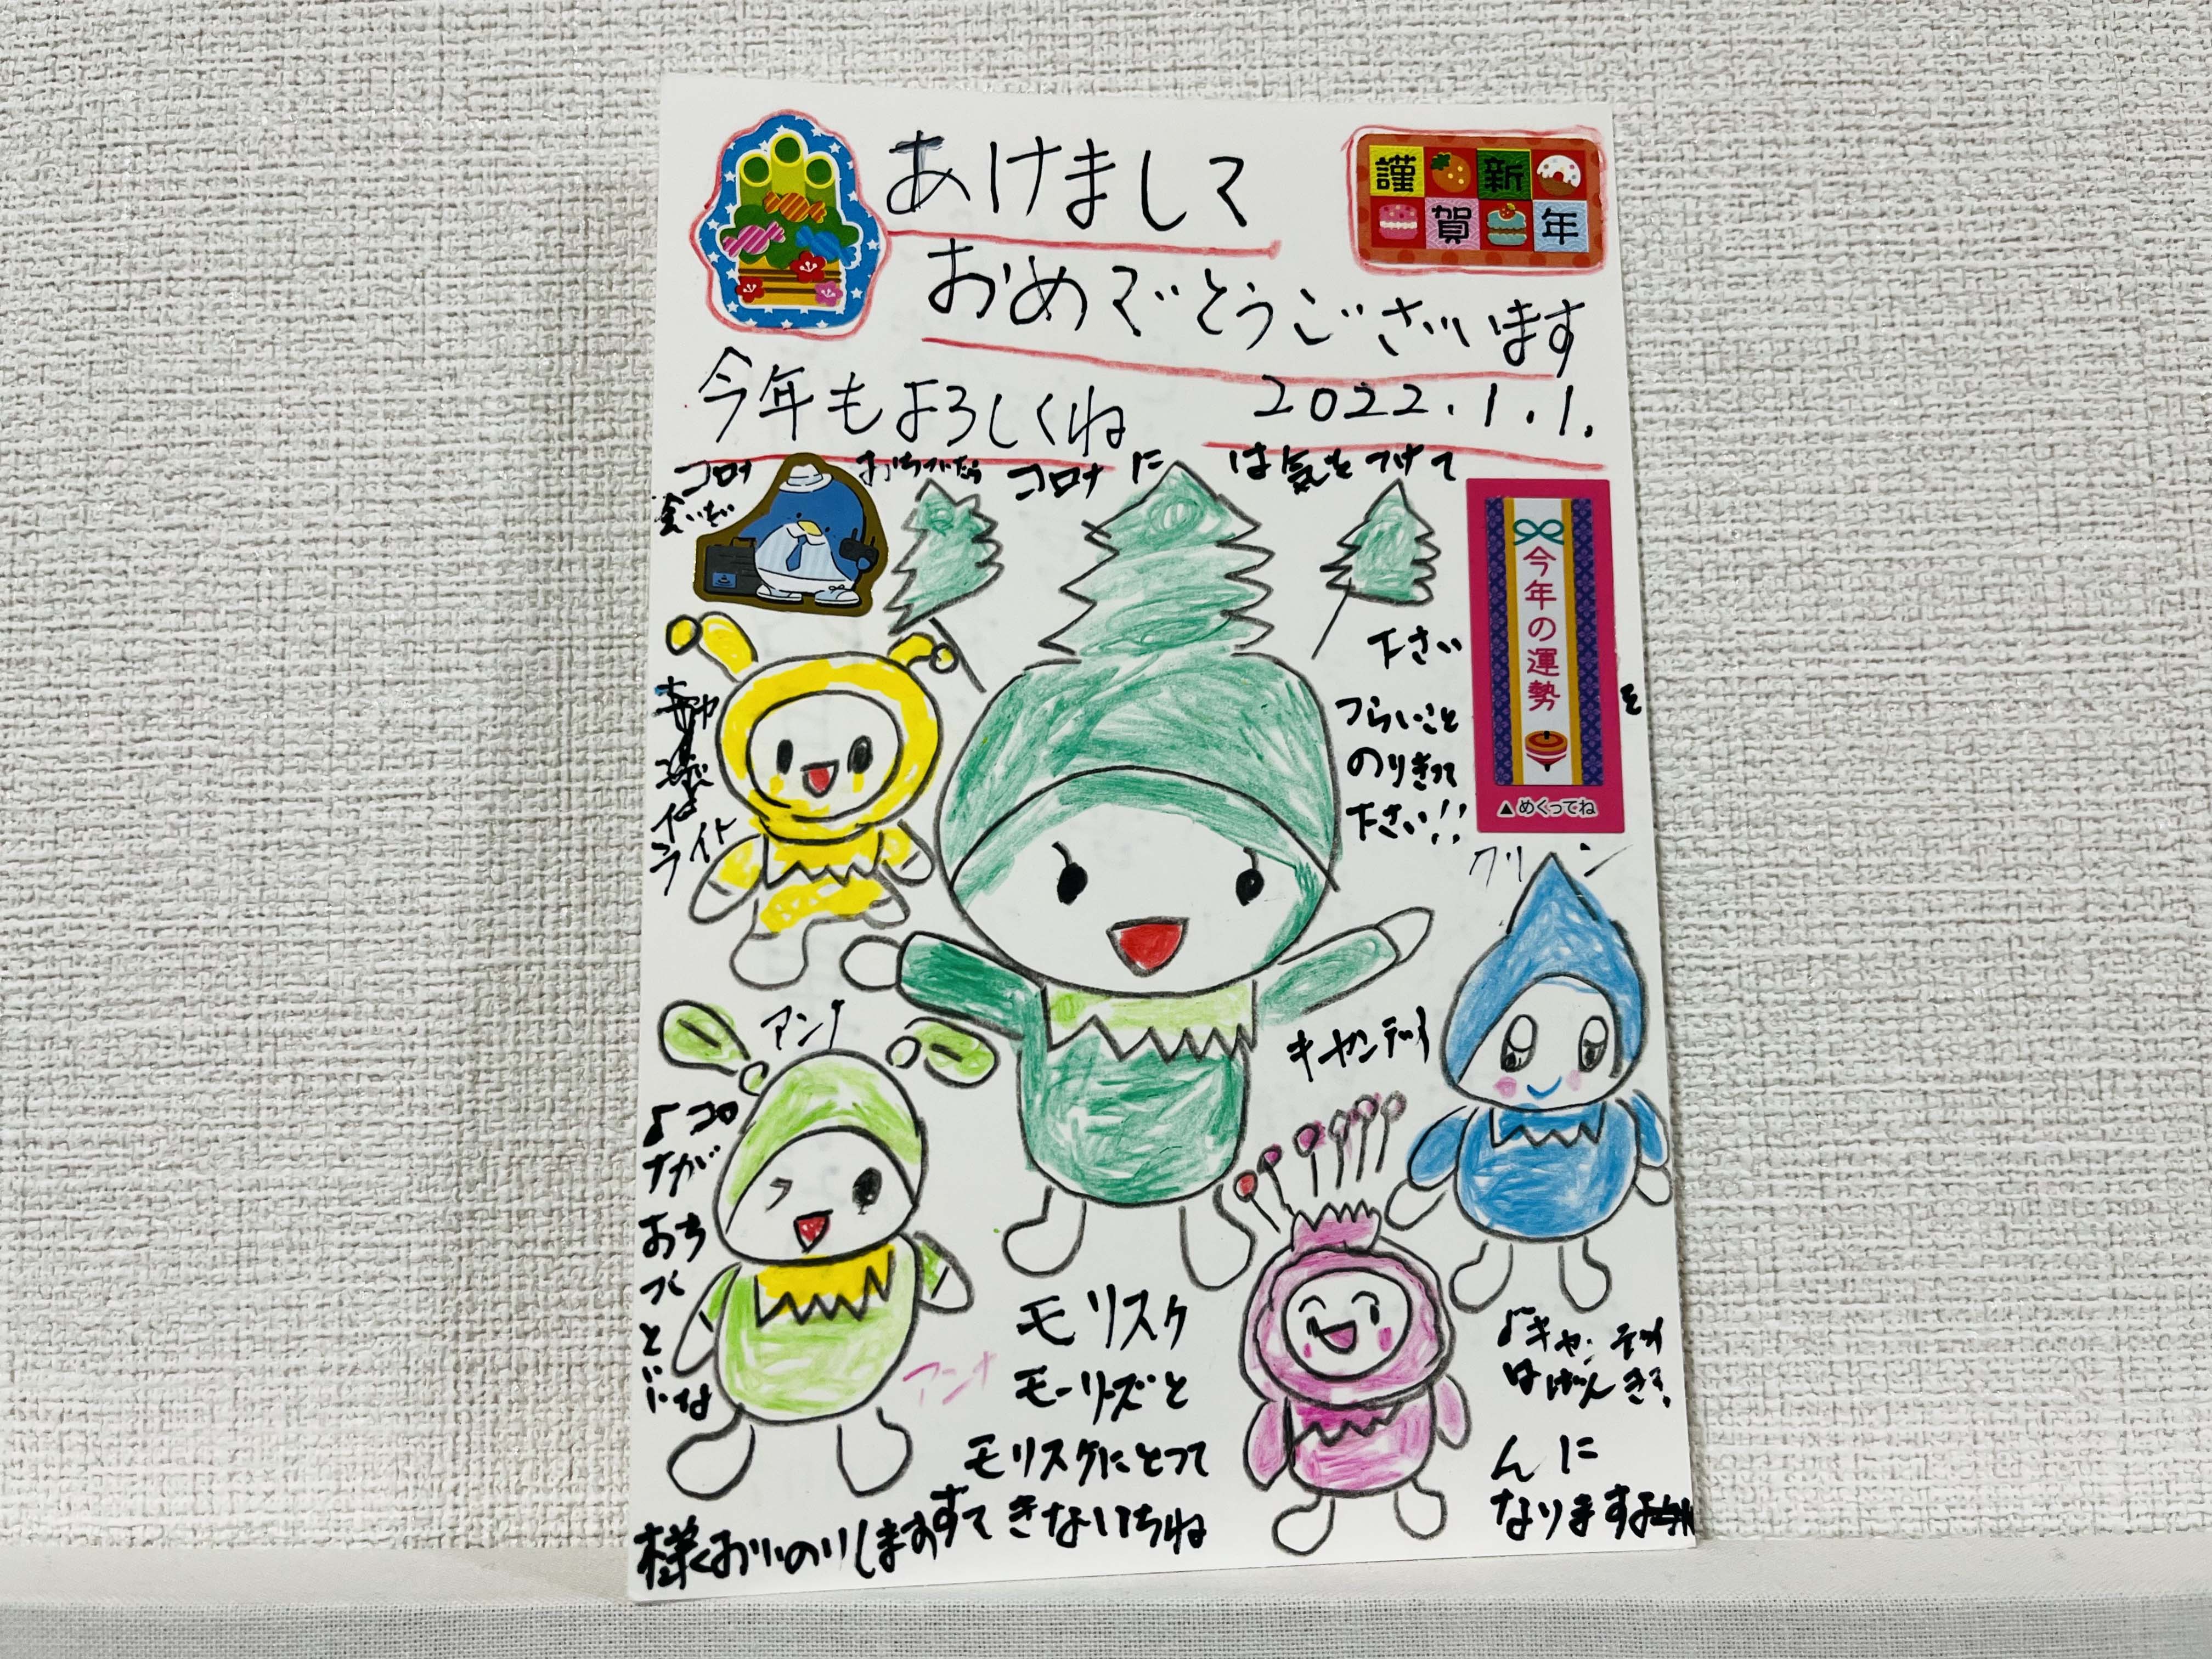 あけまして
謹新
賀年
おめでとうございます
今年もよろしくね
2022.1.1.
コロナ
おちついたら コロナ に は気をつけて
会いたい
下さい
つらいこと
のりきって
下さい!!
今年の運勢
▲めくってね
を
ライト
クリーン
アンナ
キャンディ
♪コロ
ナが
おち
つく
と
いいな
アンナ
モリスケ
モーリーズと
モリスケにとって
すてきないちね
様くおいのりします
♪キャンディ
は
んに
なりますよ